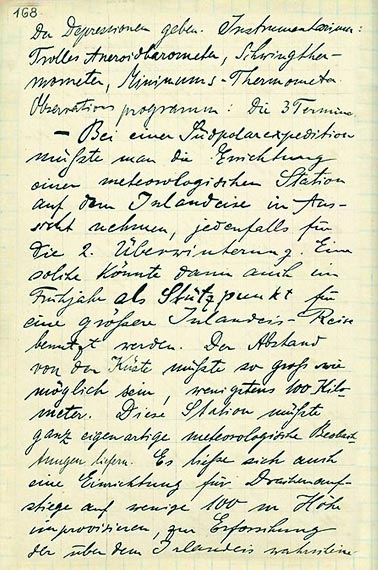 168.
der Depressionen geben. Instrumentarium:
Trolles Aneroidbarometer, Schwingther-
mometer, Minimums-Thermometer.
Observationsprogramm: Die 3 Termine.
– Bei einer Südpolarexpedition
müßte man die Errichtung
einer meteorologischen Station
auf dem Inlandeise in Aus-
sicht nehmen, jedenfalls für
die 2. Überwinterung. Eine
solche könnte dann auch im
Frühjahr als Stützpunkt für
eine größere Inlandeis-Reise
benutzt werden. Der Abstand
von der Küste müßte so groß wie
möglich sein, wenigstens 100 Kilo-
meter. Diese Station müßte
ganz eigenartige meteorologische Beobach-
tungen liefern. Es ließe sich auch
eine Einrichtung für Drachenauf-
stiege auf wenige 100 m Höhe
improvisieren, zur Erforschung
der über dem Inlandeis